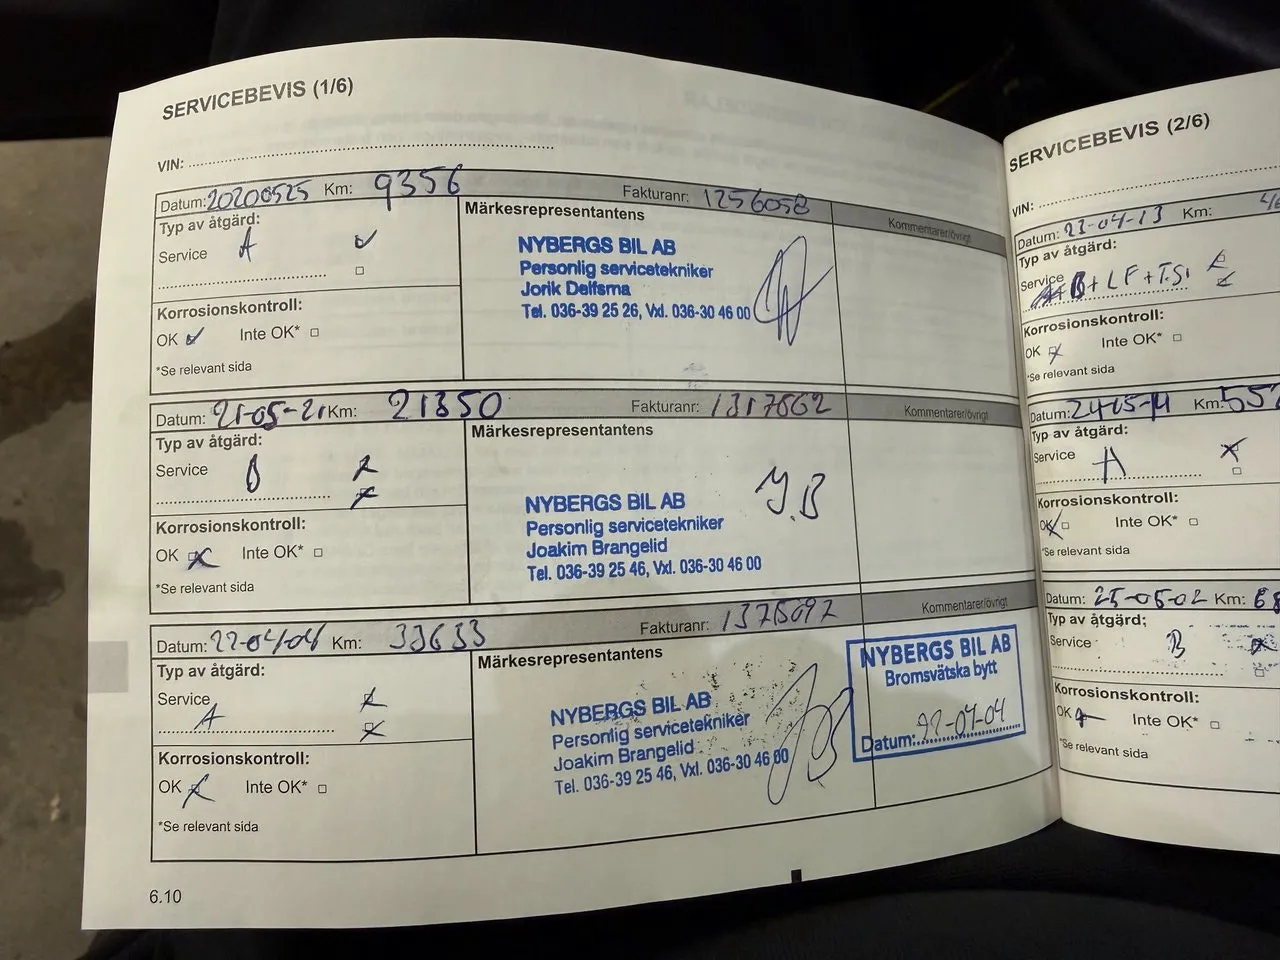 SERVICEBEVIS (1/6)
VIN:
Datum: 20200525 Km: 9356 Fakturanr: 1256058
Typ av åtgärd:
Service A
Märkesrepresentantens
Kommentarer/övrigt
NYBERGS BIL AB
Personlig servicetekniker
Jorik Delfsma
Tel. 036-39 25 26, Vxl. 036-30 46 00
Korrosionskontroll:
OK Inte OK*
*Se relevant sida
Datum: 21-05-21 Km: 21350 Fakturanr: 1317662
Typ av åtgärd:
Service B
Märkesrepresentantens
Kommentarer/övrigt
NYBERGS BIL AB
Personlig servicetekniker
Joakim Brangelid
Tel. 036-39 25 46, Vxl. 036-30 46 00
J.B
Korrosionskontroll:
OK Inte OK*
*Se relevant sida
Datum: 22-04-04 Km: 33633 Fakturanr: 1375097
Typ av åtgärd:
Service
A
Märkesrepresentantens
Kommentarer/övrigt
NYBERGS BIL AB
Personlig servicetekniker
Joakim Brangelid
Tel. 036-39 25 46, Vxl. 036-30 46 00
NYBERGS BIL AB
Bromsvätska bytt
Datum: 22-04-04
Korrosionskontroll:
OK Inte OK*
*Se relevant sida
6.10
SERVICEBEVIS (2/6)
VIN:
Datum: 23-04-13 Km:
Typ av åtgärd:
Service B + LF + T.Si
Korrosionskontroll:
OK Inte OK*
*Se relevant sida
Datum: 24-05-14 Km: 552
Typ av åtgärd:
Service A
Korrosionskontroll:
OK Inte OK*
*Se relevant sida
Datum: 25-05-02 Km: 68
Typ av åtgärd:
Service B
Korrosionskontroll:
OK Inte OK*
*Se relevant sida